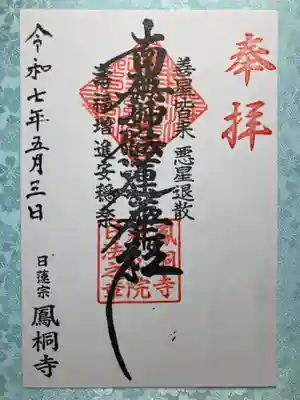 奉拝
善星皆来 悪星退散
南無妙法蓮華経
壽福增進 安穏泰
令和七年五月三日
日蓮宗 鳳桐寺
鳳桐寺